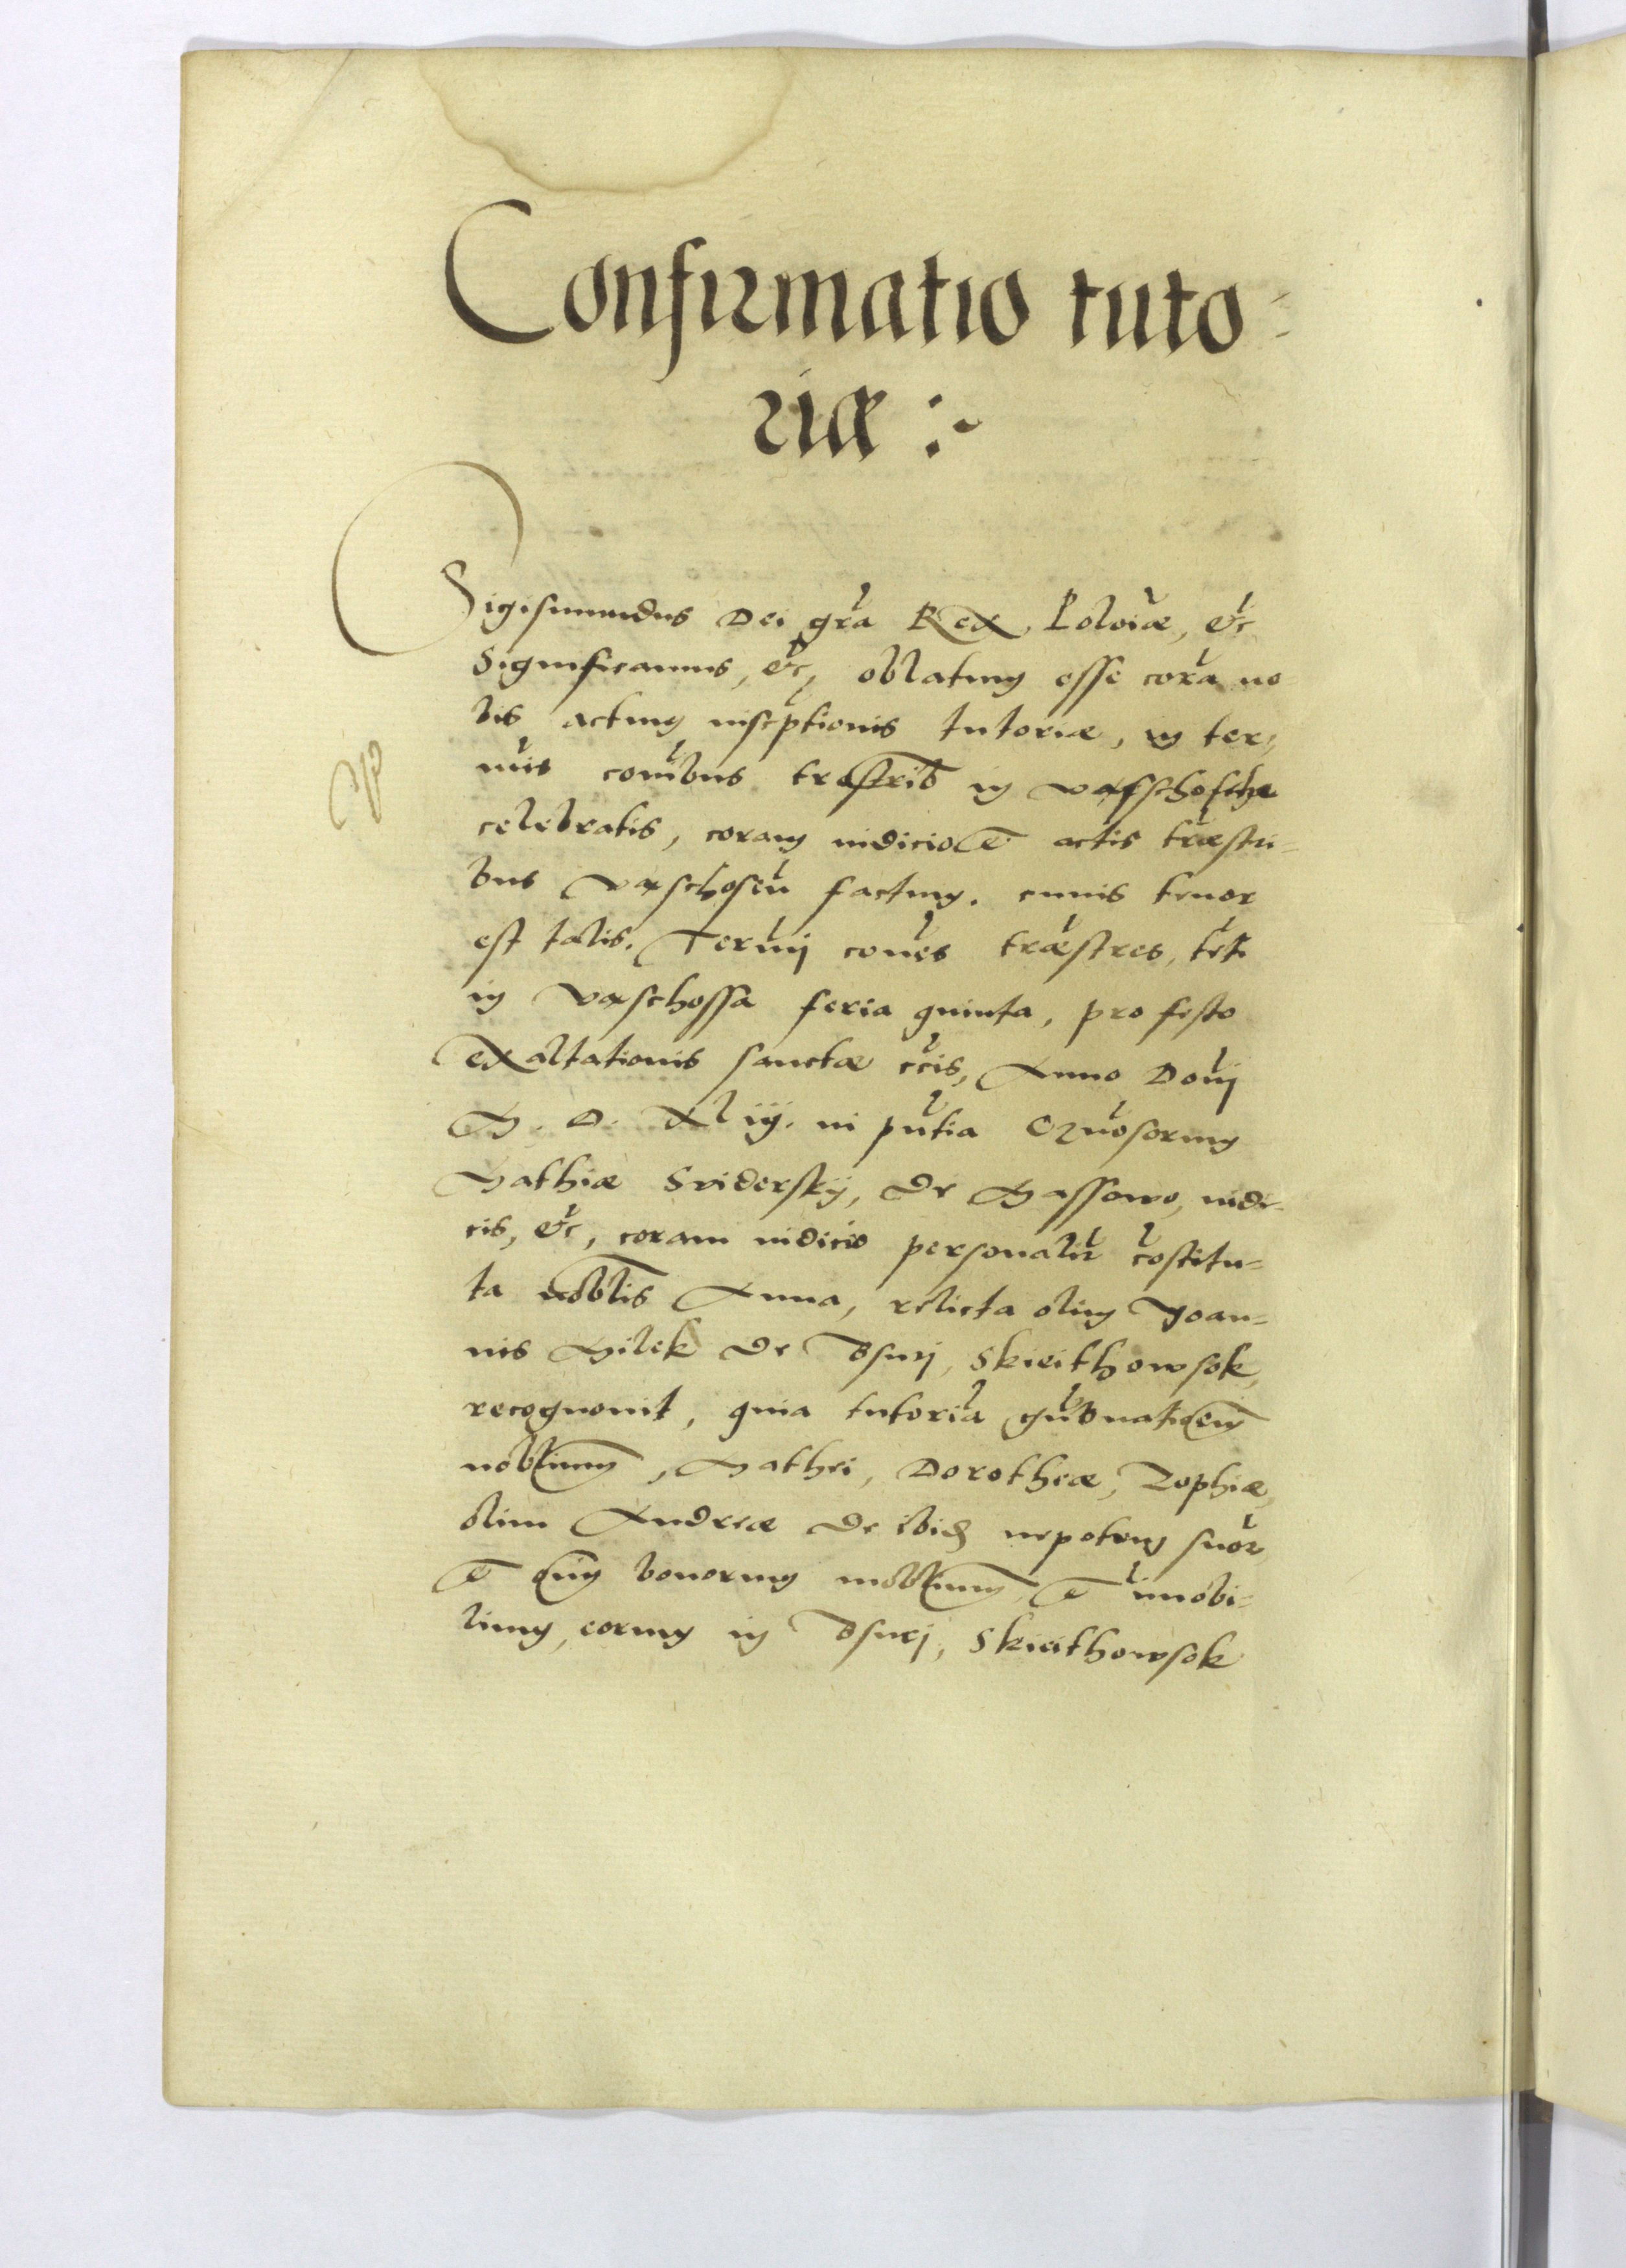 Confirmatio tuto=
riæ :~
Sigismundus Dei gra Rex Poloiæ, etc
Significamus, etc, oblatum esse cora no
bis actum inscptionis tutoriæ, in ter,
mis combus trestrib in
celebratis, coram iudicio et actis træstri=
bus factum. cuius tenor
est talis. Termi comes træstres, tet
in Vaschossa feria quinta, pro festo
exaltationis sanctæ crcis, Anno Domi
M. D. Xliij. in pntia Gnosorum
Mathiæ Sviderskij, de Massowo, iudi=
cis, etc, coram iudicio personalir costitu=
ta noblis Anna, relicta olim Joan=
nis Milek de Osuri, Skieithowsok,
recognouit, quia tutoria gubnationem
noblium, Mathei, Dorotheæ, Zophiæ,
olim Andreæ de ibid nepotum suor
et onim bonorum moblium et imobi=
lium, eorum in Osurj, Skieithowsok